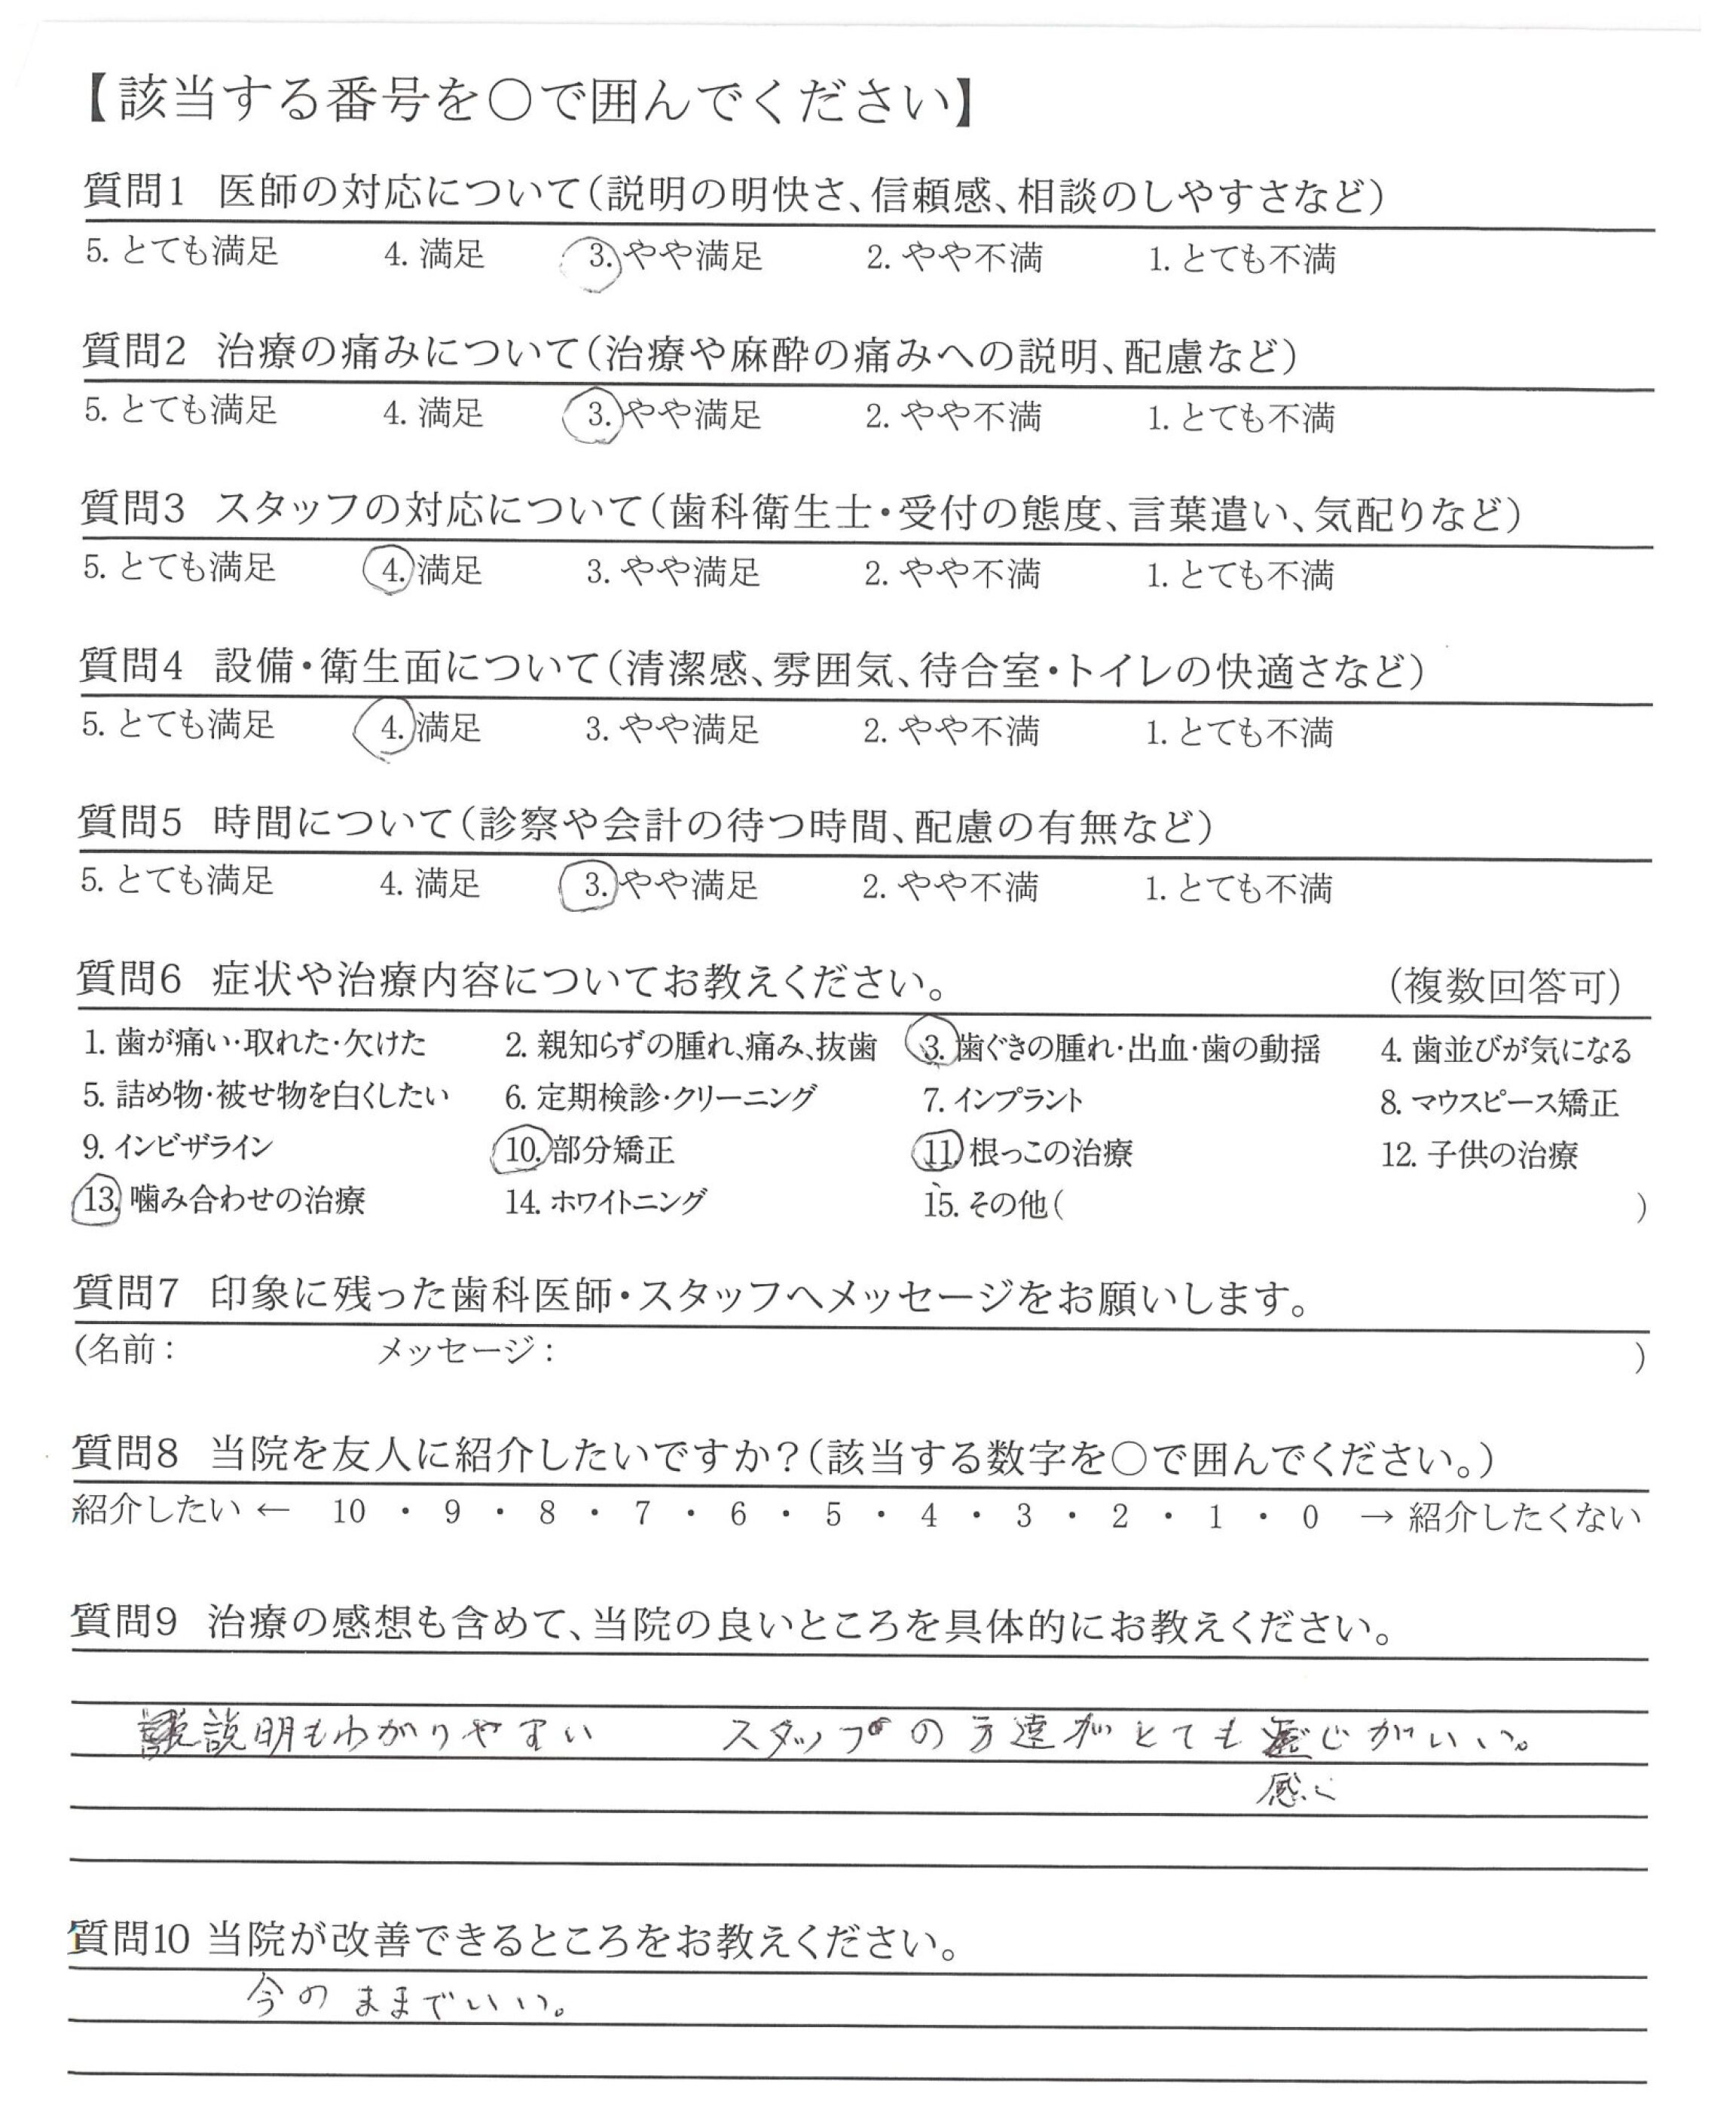 【該当する番号を○で囲んでください】
質問1 医師の対応について(説明の明快さ、信頼感、相談のしやすさなど)
5. とても満足 4. 満足 3. やや満足 2. やや不満 1. とても不満
質問2 治療の痛みについて(治療や麻酔の痛みへの説明、配慮など)
5. とても満足 4. 満足 3. やや満足 2. やや不満 1. とても不満
質問3 スタッフの対応について(歯科衛生士・受付の態度、言葉遣い、気配りなど)
5. とても満足 4. 満足 3. やや満足 2. やや不満 1. とても不満
質問4 設備・衛生面について(清潔感、雰囲気、待合室・トイレの快適さなど)
5. とても満足 4. 満足 3. やや満足 2. やや不満 1. とても不満
質問5 時間について(診察や会計の待つ時間、配慮の有無など)
5. とても満足 4. 満足 3. やや満足 2. やや不満 1. とても不満
質問6 症状や治療内容についてお教えください。 (複数回答可)
1. 歯が痛い・取れた・欠けた 2. 親知らずの腫れ、痛み、抜歯 3. 歯ぐきの腫れ・出血・歯の動揺 4. 歯並びが気になる
5. 詰め物・被せ物を白くしたい 6. 定期検診・クリーニング 7. インプラント 8. マウスピース矯正
9. インビザライン 10. 部分矯正 11. 根っこの治療 12. 子供の治療
13. 噛み合わせの治療 14. ホワイトニング 15. その他( )
質問7 印象に残った歯科医師・スタッフへメッセージをお願いします。
(名前: メッセージ: )
質問8 当院を友人に紹介したいですか?(該当する数字を○で囲んでください。)
紹介したい ← 10 ・ 9 ・ 8 ・ 7 ・ 6 ・ 5 ・ 4 ・ 3 ・ 2 ・ 1 ・ 0 → 紹介したくない
質問9 治療の感想も含めて、当院の良いところを具体的にお教えください。
説明もわかりやすい スタッフの方達がとても じがいい。
感じ
質問10 当院が改善できるところをお教えください。
今のままでいい。